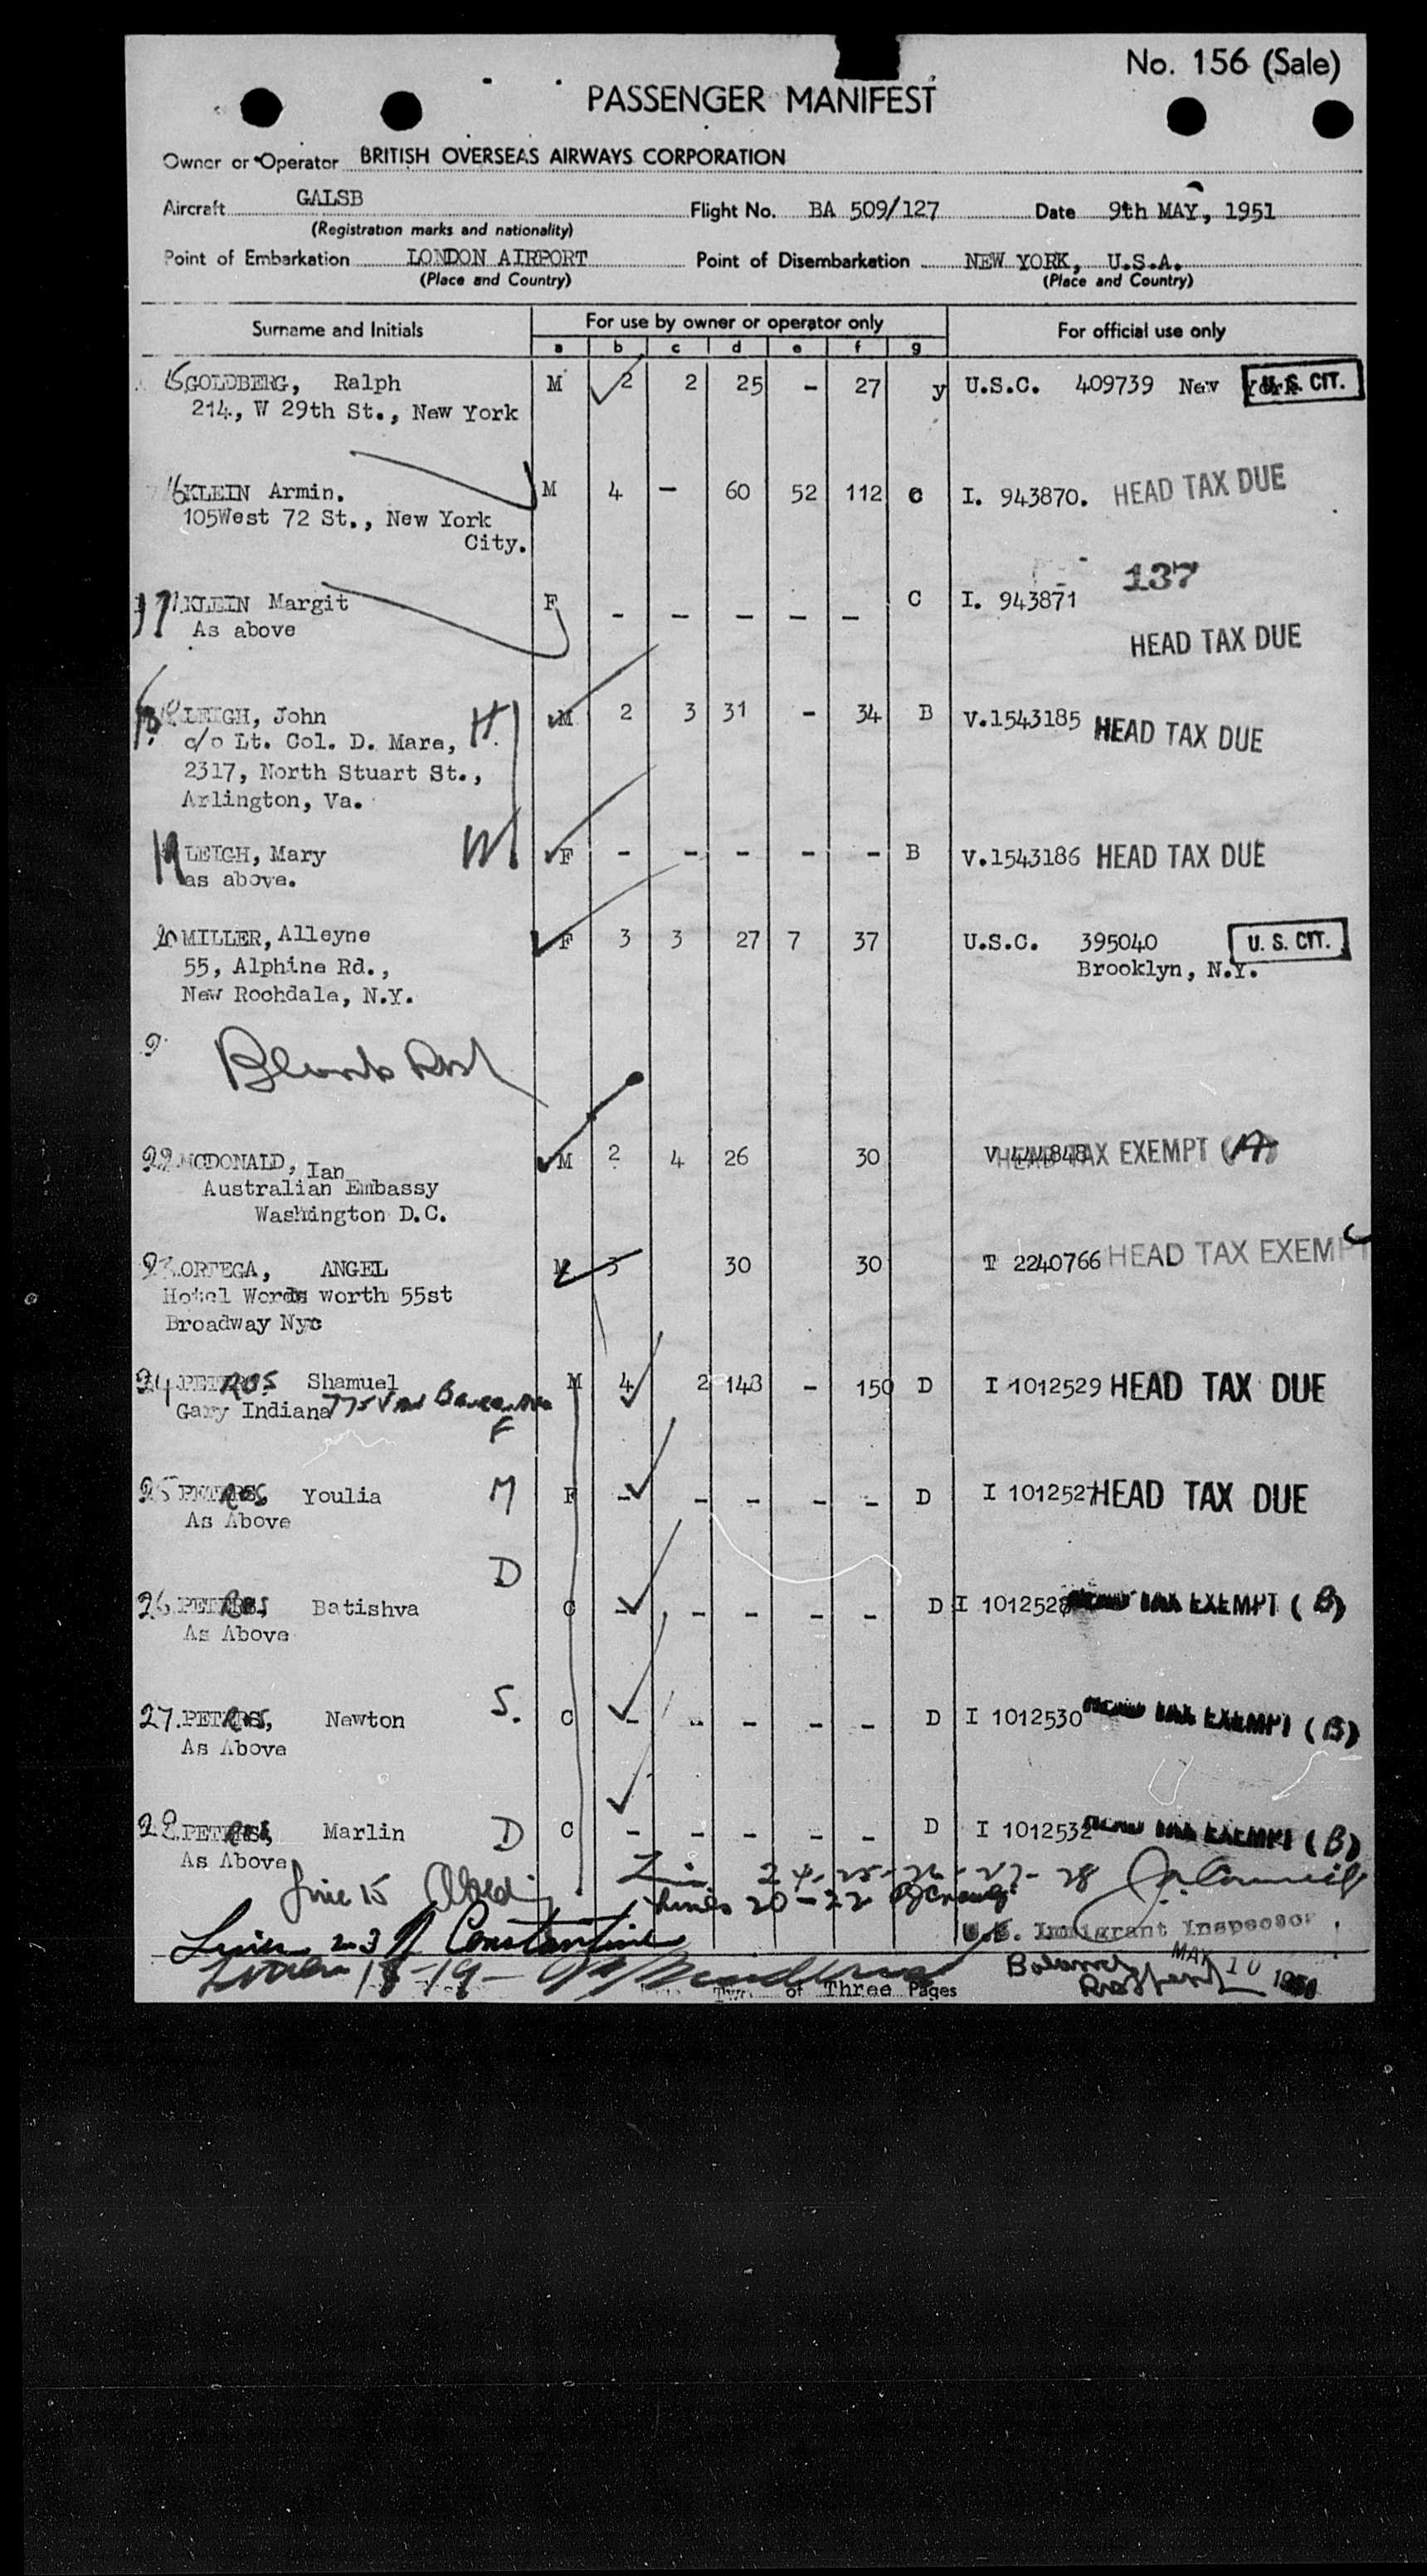 No. 156 (Sale)
PASSENGER MANIFEST
Owner or Operator BRITISH OVERSEAS AIRWAYS CORPORATION
Aircraft GALSB Flight No. BA 509/127 Date 9th MAY, 1951
(Registration marks and nationality)
Point of Embarkation LONDON AIRPORT Point of Disembarkation NEW YORK, U.S.A.
(Place and Country) (Place and Country)
Surname and Initials For use by owner or operator only For official use only
a b c d e f g
15 GOLDBERG, Ralph M 2 2 25 - 27 y U.S.C. 409739 New York U. S. CIT.
214, W 29th St., New York
16 KLEIN Armin. M 4 - 60 52 112 C I. 943870. HEAD TAX DUE
105West 72 St., New York
City.
137
17 KLEIN Margit F - - - - - C I. 943871
As above HEAD TAX DUE
18 LEIGH, John H. M 2 3 31 - 34 B V.1543185 HEAD TAX DUE
c/o Lt. Col. D. Mare,
2317, North Stuart St.,
Arlington, Va.
19 LEIGH, Mary W F - - - - - B V.1543186 HEAD TAX DUE
as above.
20 MILLER, Alleyne F 3 3 27 7 37 U.S.C. 395040 U. S. CIT.
55, Alphine Rd., Brooklyn, N.Y.
New Rochdale, N.Y.
22 MCDONALD, Ian M 2 4 26 30 V 444848 HEAD TAX EXEMPT (A)
Australian Embassy
Washington D.C.
23 ORTEGA, ANGEL M 3 30 30 T 2240766 HEAD TAX EXEMPT
Hotel Words worth 55st
Broadway Nyc
24 PETROS Shamuel M 4 2 148 - 150 D I 1012529 HEAD TAX DUE
Gary Indiana 775 Van Buren
F
25 PETROS, Youlia M F - - - - - D I 1012527 HEAD TAX DUE
As Above
D
26 PETROS, Batishva C - - - - - D I 1012528 HEAD TAX EXEMPT (B)
As Above
27. PETROS, Newton S. C - - - - - D I 1012530 HEAD TAX EXEMPT (B)
As Above
28 PETROS, Marlin D C - - - - - D I 1012532 HEAD TAX EXEMPT (B)
As Above
Line 15 24-25-26-27-28
Lines 20-22
U.S. Immigrant Inspector
Lines 23 Constantine
18-19- MAY 10 1951
Two of Three Pages